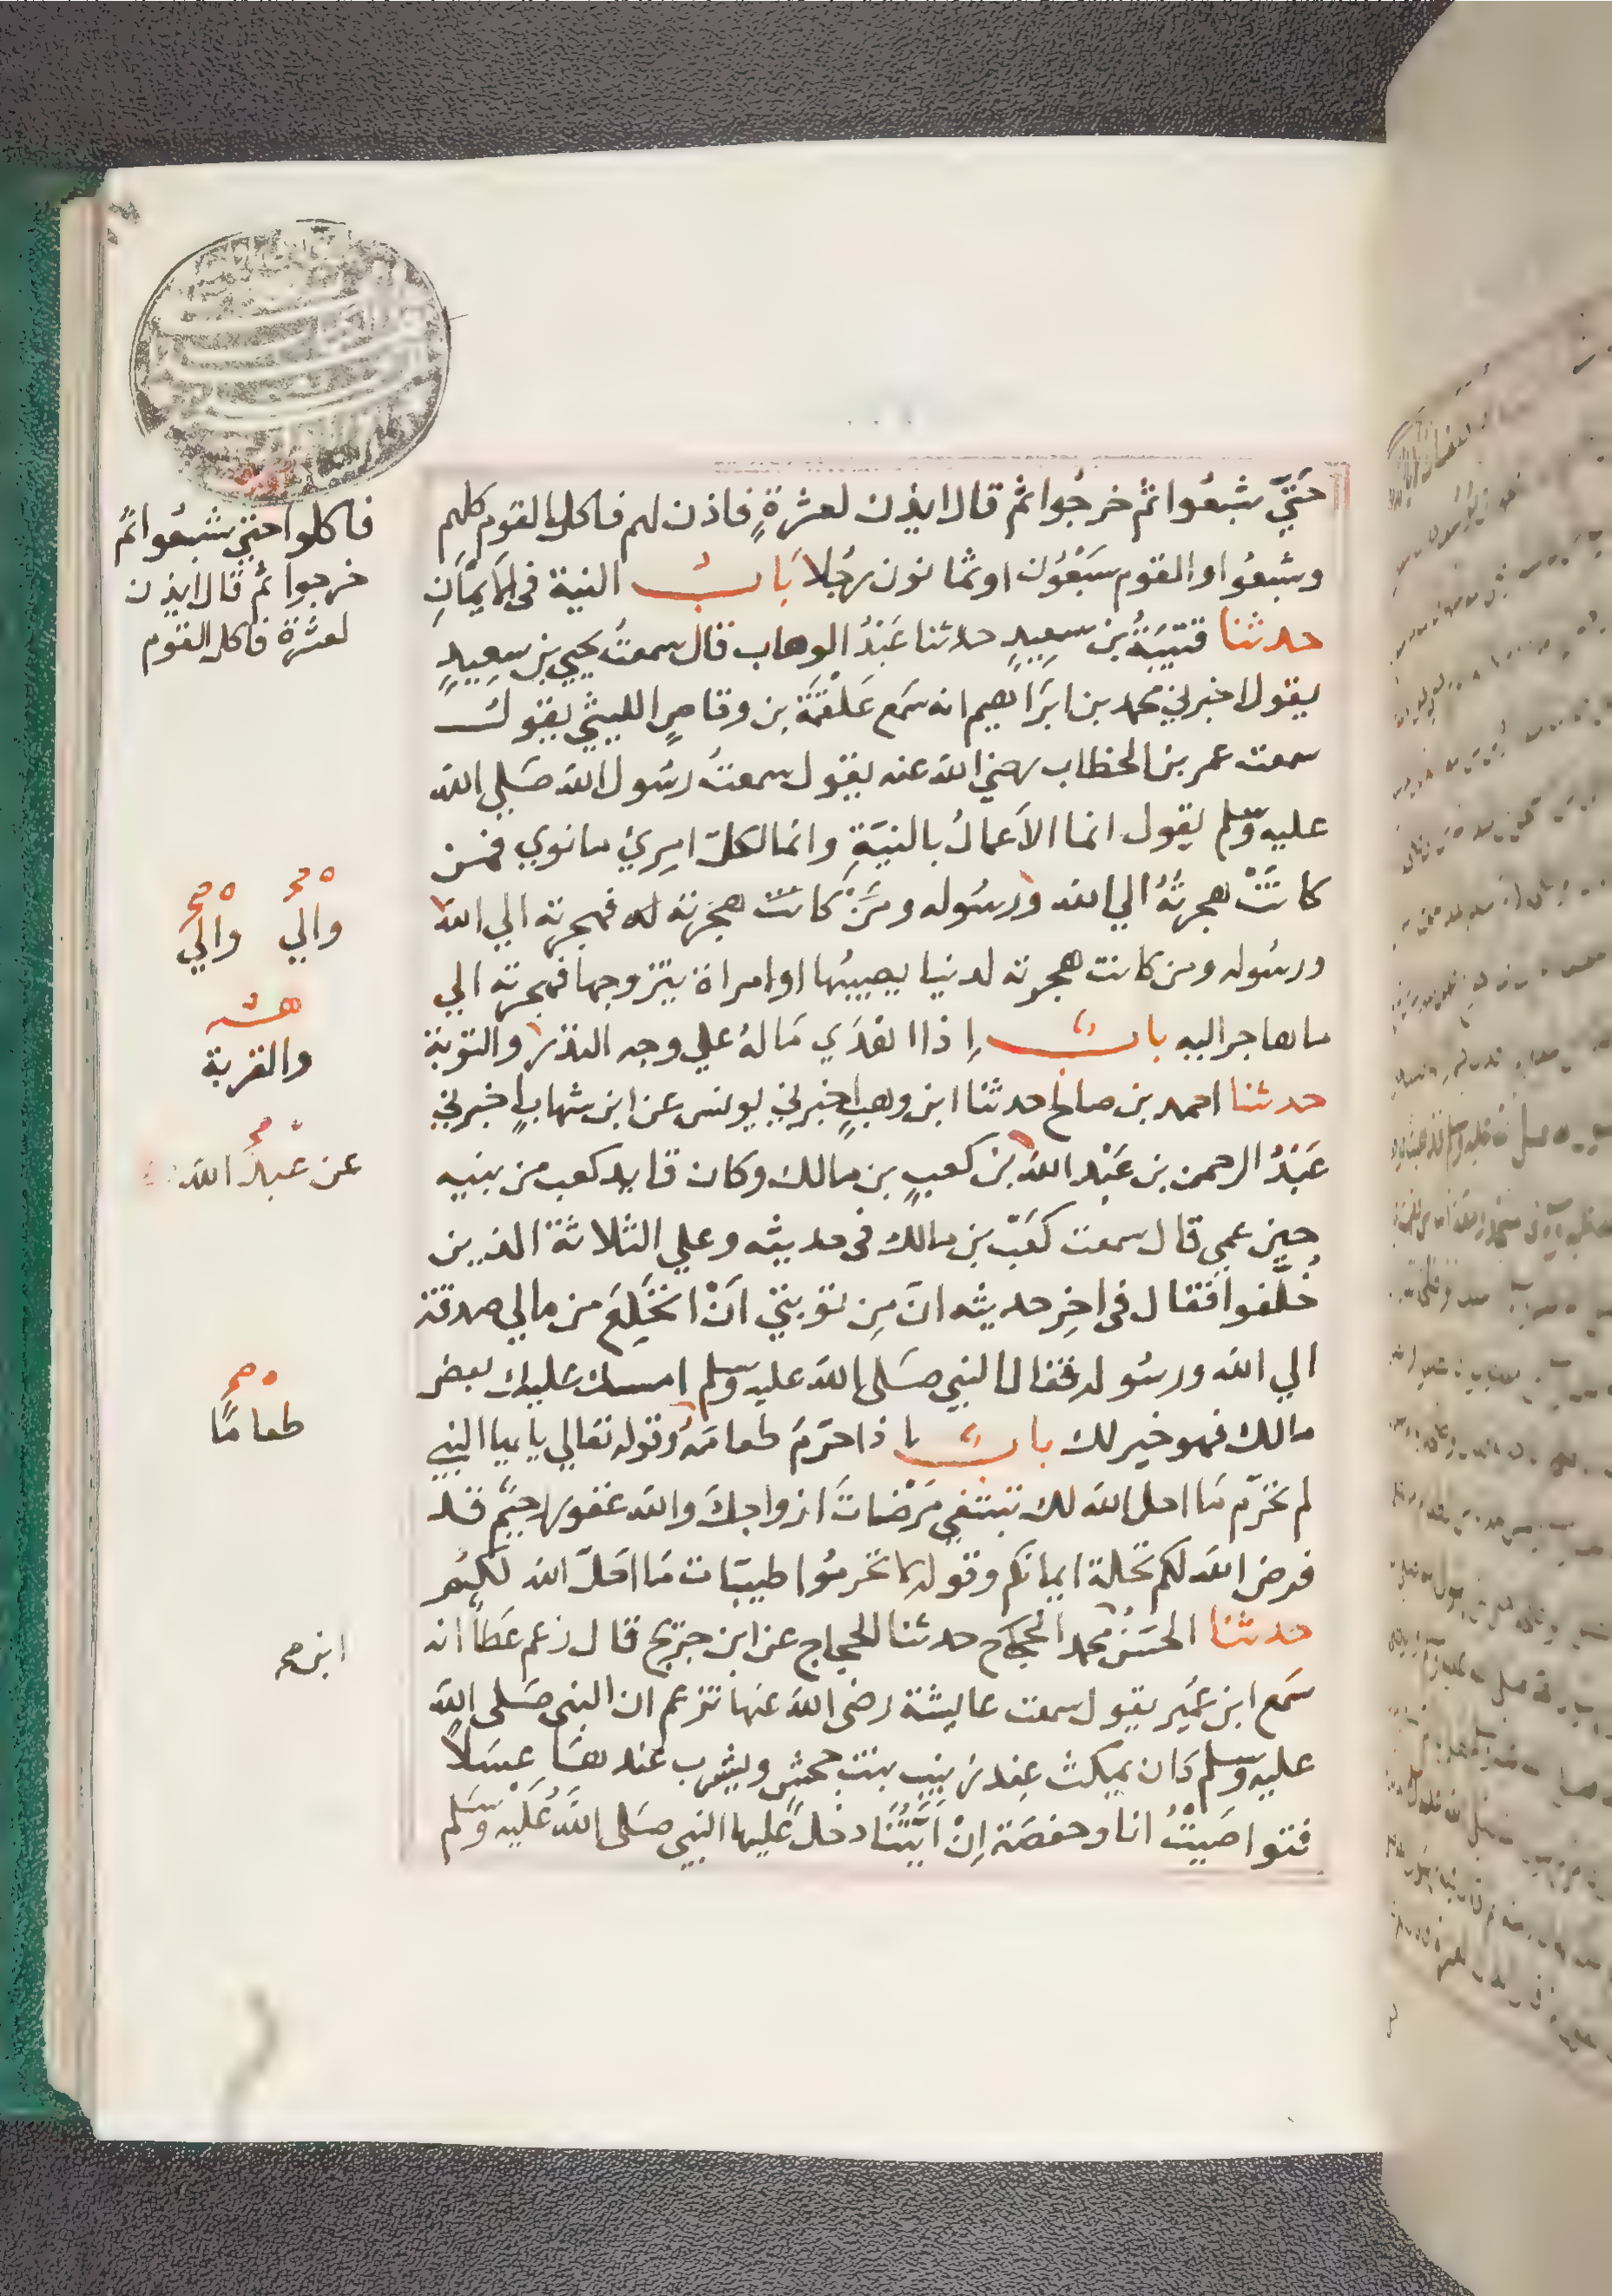 حَتَّي شبعُوا ثم خرجُوا ثم قال ايذن لعشرةٍ فاذن لهم فاكل القوم كلهم
وشبعُوا والقوم سَبْعُون او ثمانون رجُلا بَابُ النية في الايمَانِ
حدثنا قتيبَةُ بن سعِيدٍ حدثنا عَبْدُ الوهاب قال سمعتُ يحيي بن سعِيدٍ
يقول اخبرني محمد بن ابرَاهيم انه سَمع عَلْقَمَة بن وقاصٍ الليثي يقول
سمعت عمر بن الخطاب رضي الله عنه يقول سمعتُ رسُول الله صَلي الله
عليه وسلم يقول انما الاَعمالُ بالنيَةِ وانما لكلّ امرِيءٍ ما نوي فمن
كانَتْ هجرتُهُ الي الله ورسُوله ومَنْ كانت هجرته له فهجرته الي الله
ورسُوله ومن كانت هجرته لدنيا يصيبُها او امراة يتزوجها فهجرته الي
ما هاجر اليه بابُ اِذا اهدَي مَالهُ علي وجه النذر والتوبة
حدثنا احمد بن صالح حدثنا ابن وهبٍ اخبرني يونس عن ابن شهابٍ اخبرني
عَبْدُ الرحمن بن عَبْد الله بن كعبٍ بن مالك وكان قايد كعب من بنيه
حين عمي قال سمعت كَعَبْ بن مالك في حديثه وعلي الثلاثة الذين
خُلّفوا فقال في اخِر حديثه انَ مِن توبتي اَنْ انخَلِعَ من مالي صدقة
الي الله ورسُوله فقال النبي صَلى الله عليه وسلم امسك عَليك بعض
مالك فهو خير لك بابُ اذا حَرّمَ طعامَهُ وقوله تعالي يا يها النبي
لم تحَرّم مَا احل الله لك تبتغي مَرْضَاتَ ازواجكَ والله غفور رحيمٌ قد
فرض الله لكم تحَلة ايمانكم وقوله لا تحرمُوا طيبَات مَا اَحَلّ الله لَكُم
حدثنا الحسَنُ محمد حدثنا الحجاج عن ابن جريج قال زعم عَطَاً انه
سَمع ابن عُمَير يقول سمعت عايشة رضى الله عنها تزعم ان النبى صَلى الله
عليه وسلم كان يمكث عِند زينب بنت جحشٍ ويشرب عندهَا عسَلاً
فتواصَيْتُ انا وحفصَة اِنْ اَيَّتُنَا دخلَ عَليها النبي صَلى الله عَلَيْه وَسَلم
فاكلوا حتي شبعُوا ثم
خرجوا ثم قال ايذن
لعشرةٍ فاكل القوم
والي ه صح والي ه صح
هـ
والقربة
عن عبد الله صح
طعامًا ه صح
ابن صح